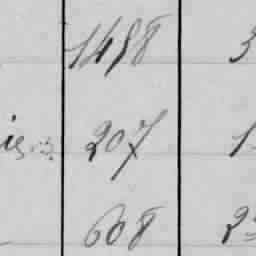 1458 3
ie 207 1
608 2